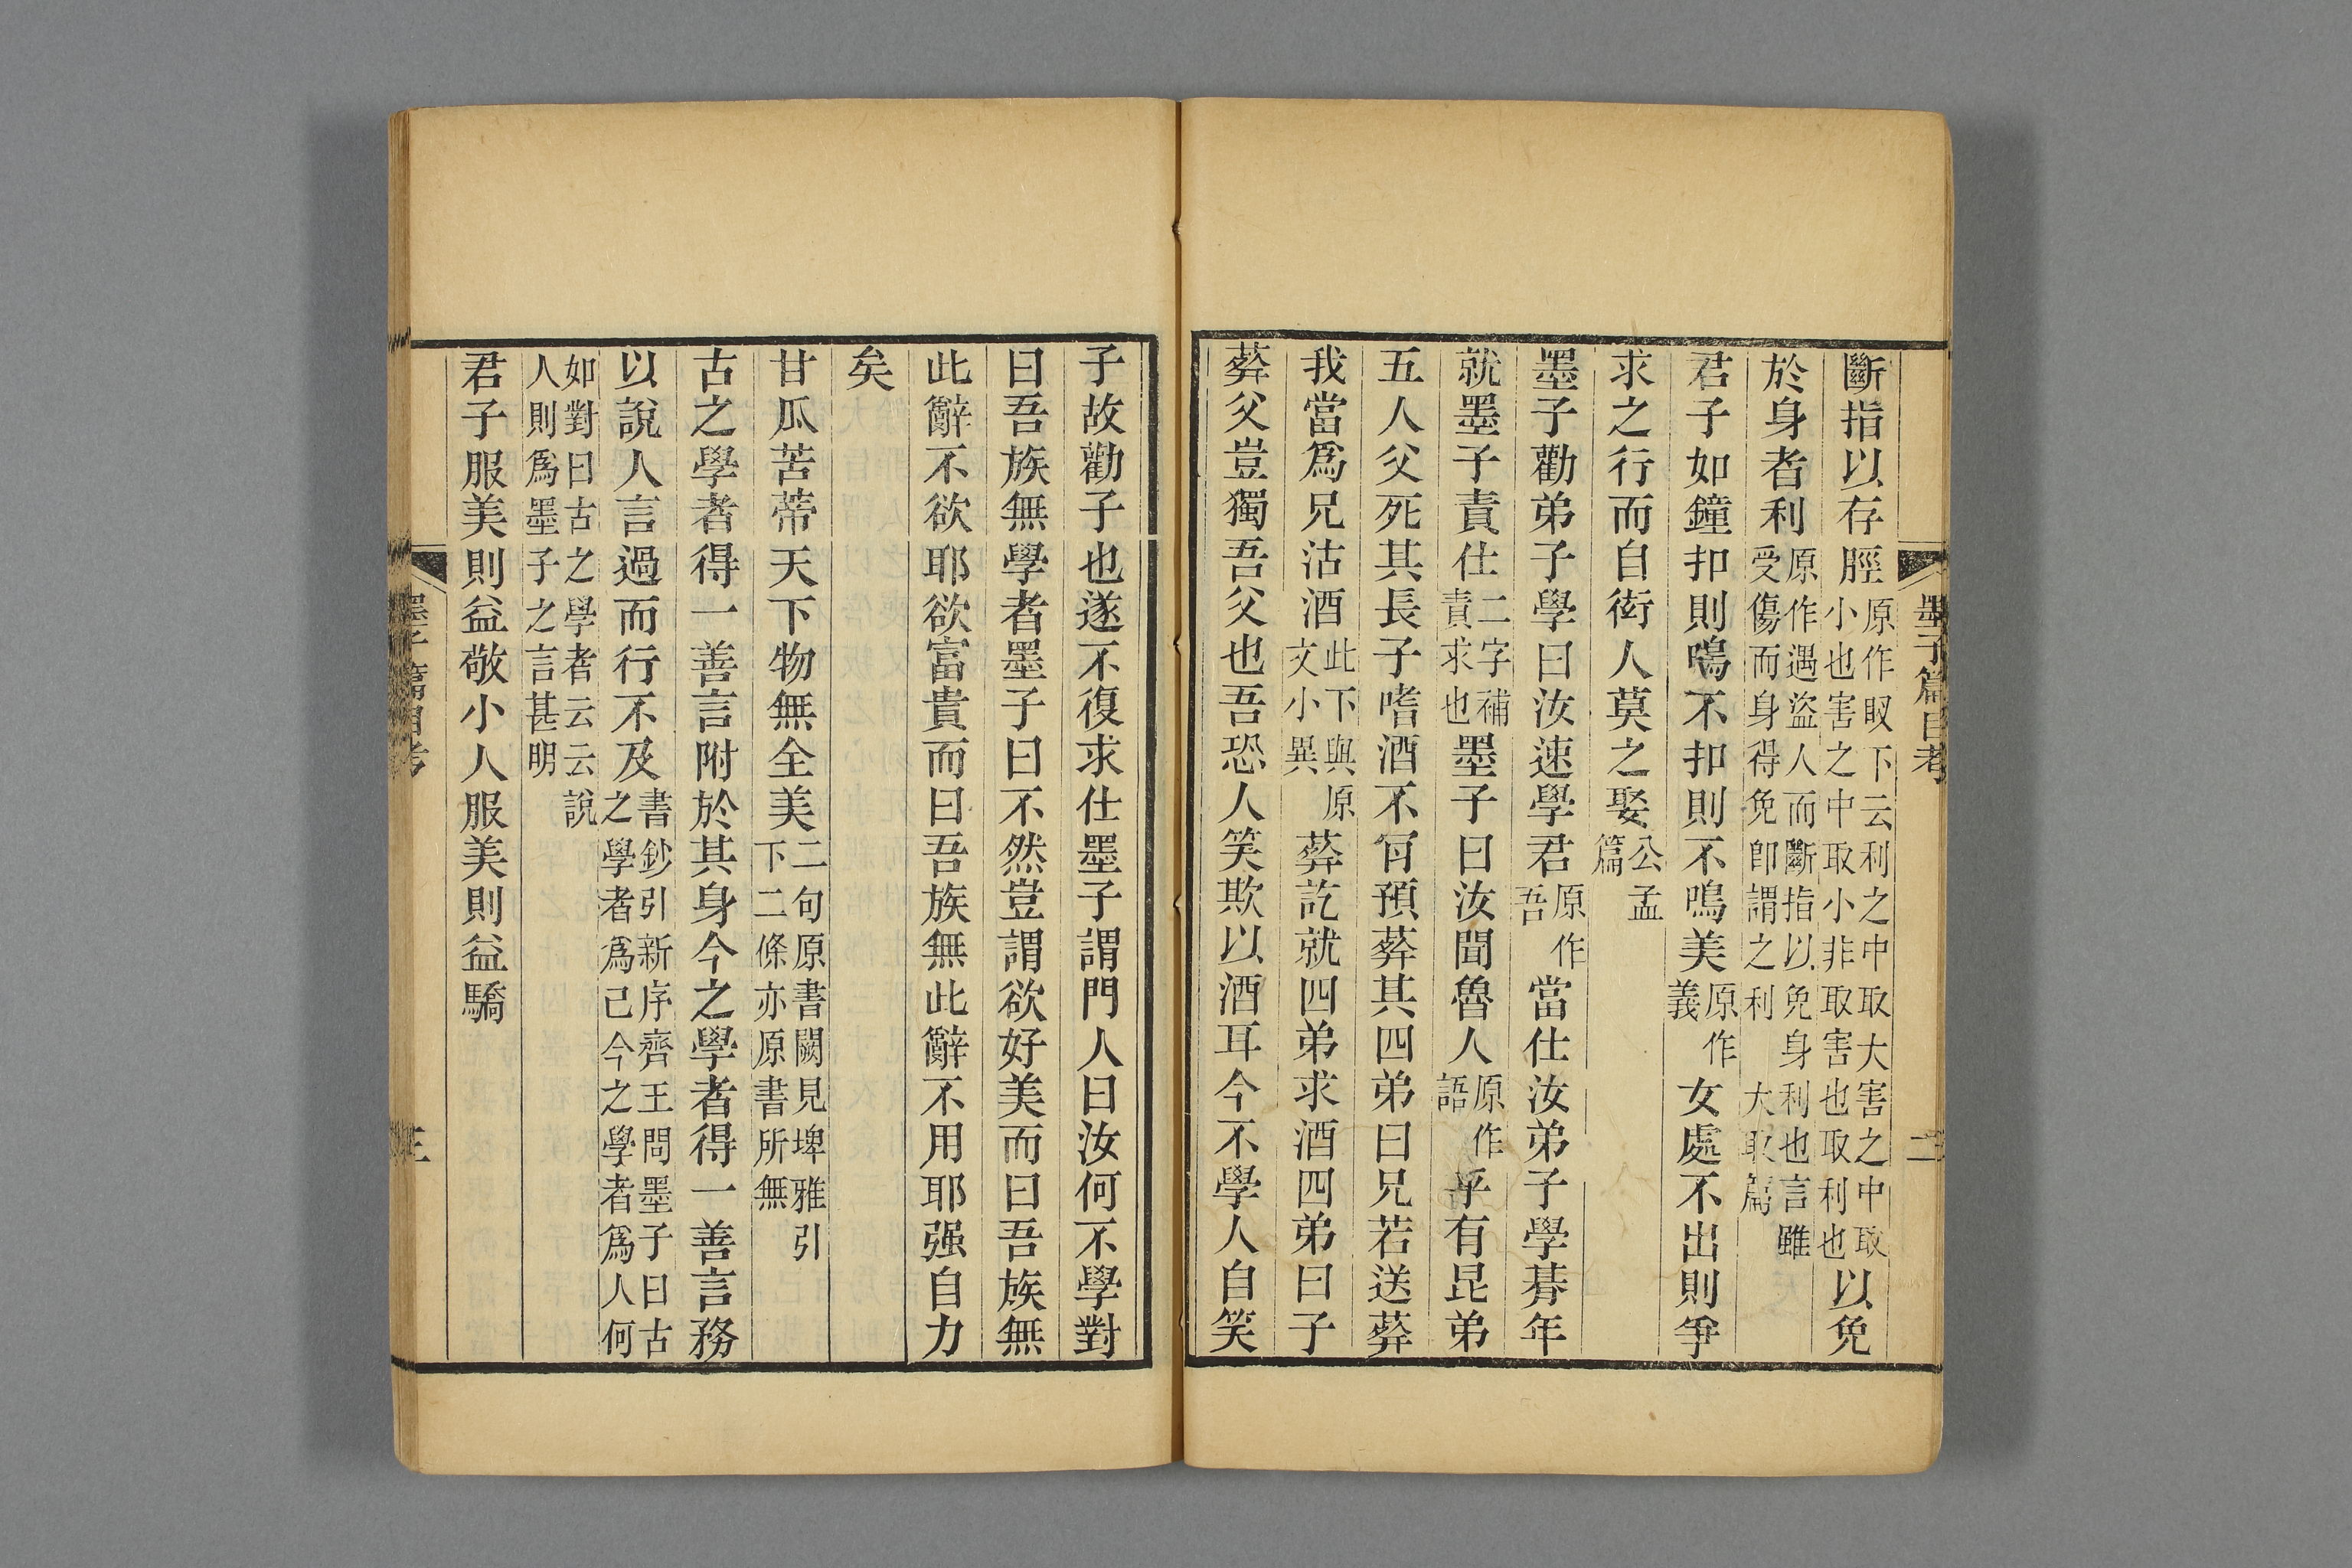 墨子篇目考
二
斷指以存脛原作下云利之中取大害之中取小也害之中取小非取害也取利也以免
於身者利原作遇盜人而斷指以免身利也言雖受傷而身得免卽謂之利　大取篇
君子如鐘扣則鳴不扣則不鳴美原作義女處不出則爭
求之行而自衒人莫之娶公孟篇
墨子勸弟子學曰汝速學君原作吾當仕汝弟子學朞年
就墨子責仕二字補責求也墨子曰汝聞魯人原作語乎有昆弟
五人父死其長子嗜酒不肯預葬其四弟曰兄若送葬
我當爲兄沽酒此下與原文小異葬訖就四弟求酒四弟曰子
葬父豈獨吾父也吾恐人笑欺以酒耳今不學人自笑
子故勸子也遂不復求仕墨子謂門人曰汝何不學對
曰吾族無學者墨子曰不然豈謂欲好美而曰吾族無
此辭不欲耶欲富貴而曰吾族無此辭不用耶强自力
矣
甘瓜苦蒂天下物無全美二句原書闕見埤雅引下二條亦原書所無
古之學者得一善言附於其身今之學者得一善言務
以說人言過而行不及書鈔引新序齊王問墨子曰古之學者爲己今之學者爲人何
如對曰古之學者云云說人則爲墨子之言甚明
君子服美則益敬小人服美則益驕
墨子篇目考
三